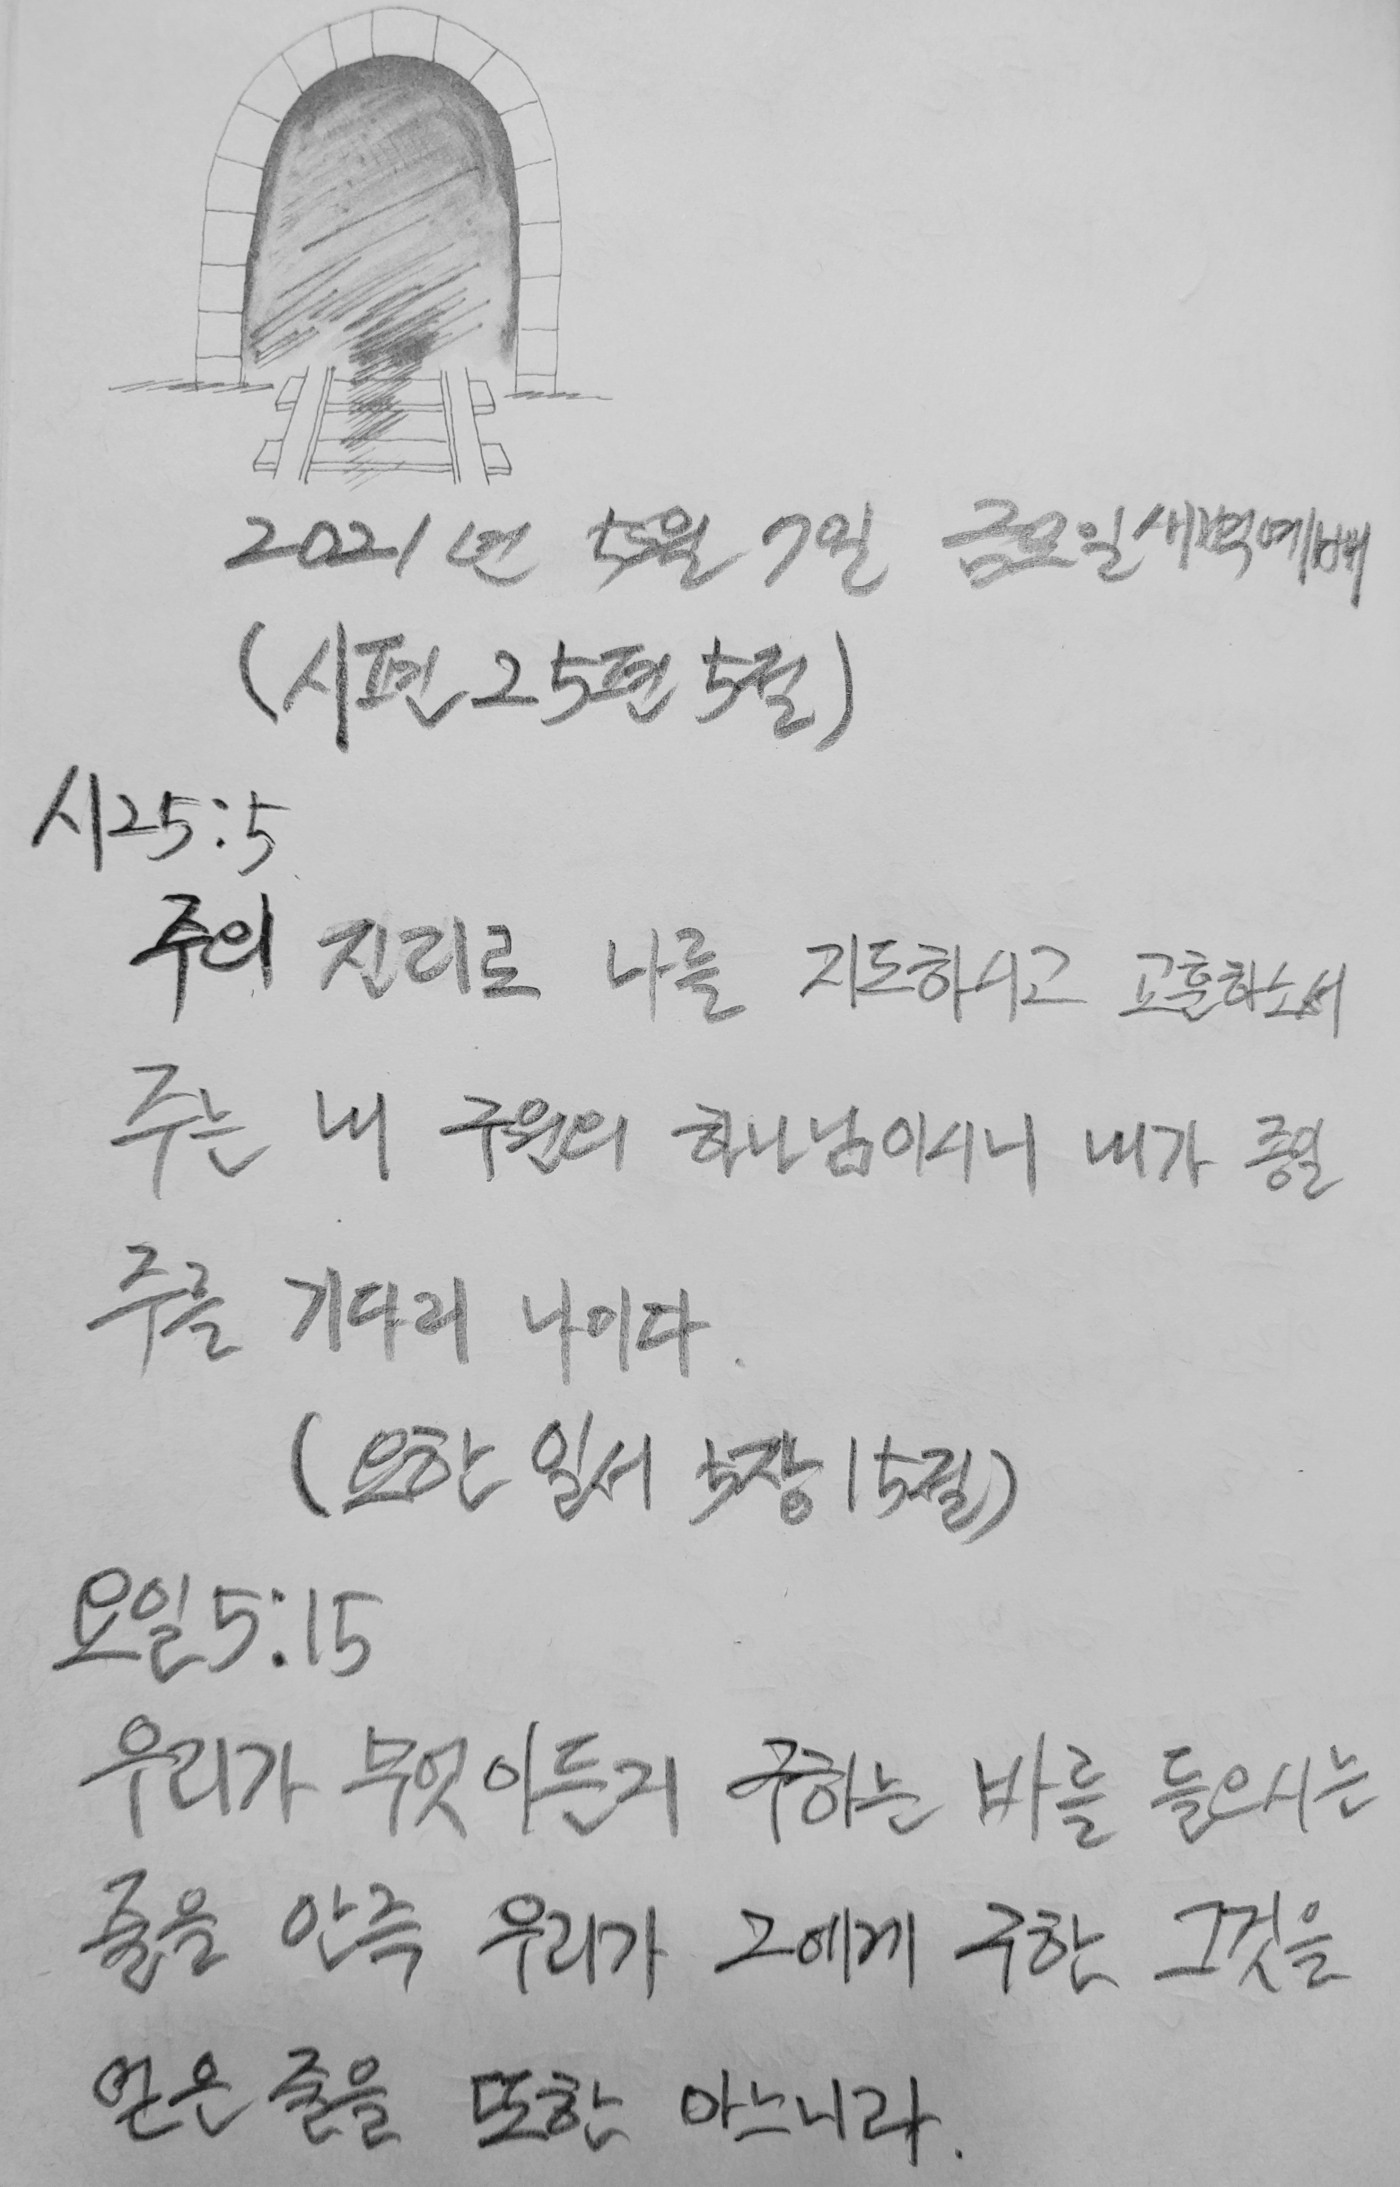 2021년 5월 7일 금요일새벽예배
(시편 25편 5절)
시25:5
주의 진리로 나를 지도하시고 교훈하소서
주는 내 구원의 하나님이시니 내가 종일
주를 기다리 나이다.
(요한 일서 5장 15절)
요일5:15
우리가 무엇이든지 구하는 바를 들으시는
줄을 안즉 우리가 그에게 구한 그것을
얻은 줄을 또한 아느니라.